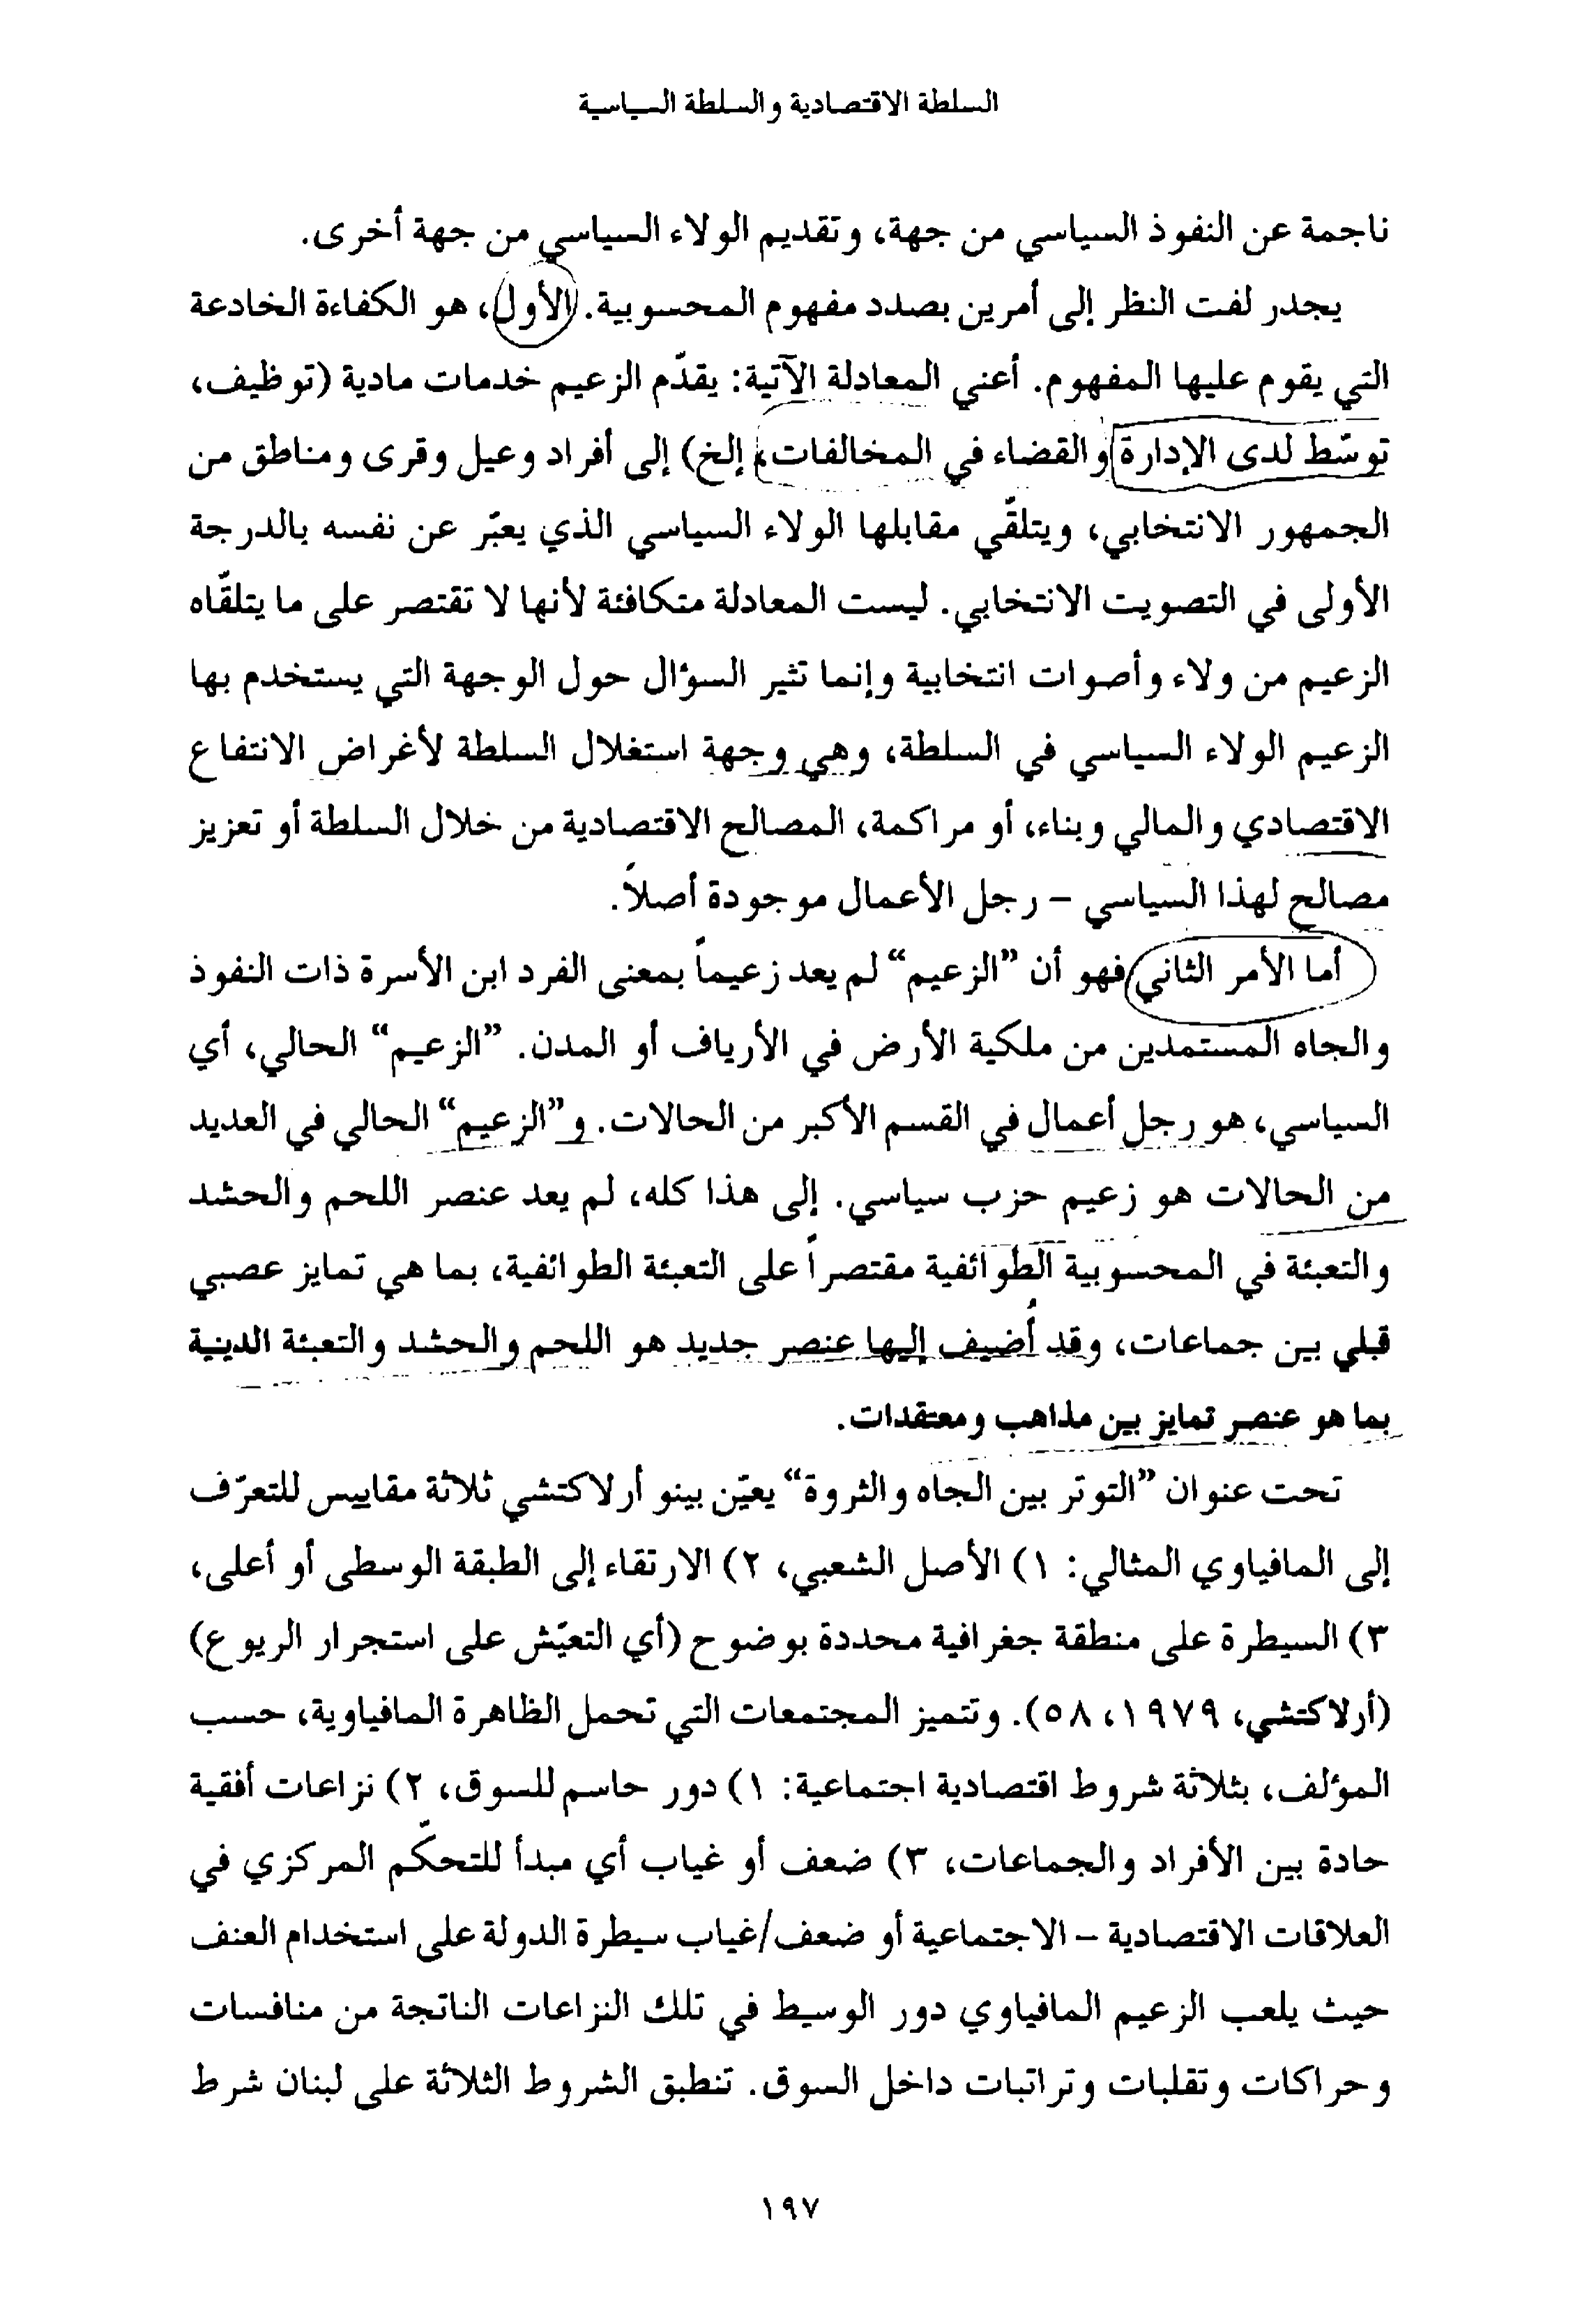 السلطة الاقتصادية والسلطة السياسية
ناجمة عن النفوذ السياسي من جهة، وتقديم الولاء السياسي من جهة أخرى.
يجدر لفت النظر إلى أمرين بصدد مفهوم المحسوبية. الأول، هو الكفاءة الخادعة
التي يقوم عليها المفهوم. أعني المعادلة الآتية: يقدّم الزعيم خدمات مادية (توظيف،
توسّط لدى الإدارة والقضاء في المخالفات، إلخ) إلى أفراد وعيل وقرى ومناطق من
الجمهور الانتخابي، ويتلقّي مقابلها الولاء السياسي الذي يعبّر عن نفسه بالدرجة
الأولى في التصويت الانتخابي. ليست المعادلة متكافئة لأنها لا تقتصر على ما يتلقّاه
الزعيم من ولاء وأصوات انتخابية وإنما تثير السؤال حول الوجهة التي يستخدم بها
الزعيم الولاء السياسي في السلطة، وهي وجهة استغلال السلطة لأغراض الانتفاع
الاقتصادي والمالي وبناء، أو مراكمة، المصالح الاقتصادية من خلال السلطة أو تعزيز
مصالح لهذا السياسي – رجل الأعمال موجودة أصلاً.
أما الأمر الثاني فهو أن ”الزعيم“ لم يعد زعيماً بمعنى الفرد ابن الأسرة ذات النفوذ
والجاه المستمدين من ملكية الأرض في الأرياف أو المدن. ”الزعيم“ الحالي، أي
السياسي، هو رجل أعمال في القسم الأكبر من الحالات. و”الزعيم“ الحالي في العديد
من الحالات هو زعيم حزب سياسي. إلى هذا كله، لم يعد عنصر اللحم والحشد
والتعبئة في المحسوبية الطوائفية مقتصراً على التعبئة الطوائفية، بما هي تمايز عصبي
قبلي بين جماعات، وقد أُضيف إليها عنصر جديد هو اللحم والحشد والتعبئة الدينية
بما هو عنصر تمايز بين مذاهب ومعتقدات.
تحت عنوان ”التوتر بين الجاه والثروة“ يعيّن بينو أرلاكتشي ثلاثة مقاييس للتعرّف
إلى المافياوي المثالي: ١) الأصل الشعبي، ٢) الارتقاء إلى الطبقة الوسطى أو أعلى،
٣) السيطرة على منطقة جغرافية محددة بوضوح (أي التعيّش على استجرار الريوع)
(أرلاكتشي، ١٩٧٩، ٥٨). وتتميز المجتمعات التي تحمل الظاهرة المافياوية، حسب
المؤلف، بثلاثة شروط اقتصادية اجتماعية: ١) دور حاسم للسوق، ٢) نزاعات أفقية
حادة بين الأفراد والجماعات، ٣) ضعف أو غياب أي مبدأ للتحكّم المركزي في
العلاقات الاقتصادية – الاجتماعية أو ضعف/غياب سيطرة الدولة على استخدام العنف
حيث يلعب الزعيم المافياوي دور الوسيط في تلك النزاعات الناتجة من منافسات
وحراكات وتقلبات وتراتبات داخل السوق. تنطبق الشروط الثلاثة على لبنان شرط
١٩٧